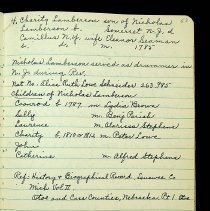 4. Charity Lamberson son of Nicholas
Lamberson b. Somerset N.J. d
Camillus N.Y. w/ Eleanor Seaman
b. d. m. 1785
Nicholas Lamberson served as drummer in
N.J. during Rev.
Nat. No. Eliza Ruth Lowe Schneider 263985
Children of Nicholas Lamberson
Coonrod b 1787 m Lydia Brown
Sally m Benj Parish
Laurence m Clarissa Stephens
Charity b. 1810 m Peter Lowe
John
Catherine m Alfred Stephens
Ref: History & Biographical Record, Lenawee Co
Mich Vol II
Otoe and Cass Counties, Nebraska Pt 1